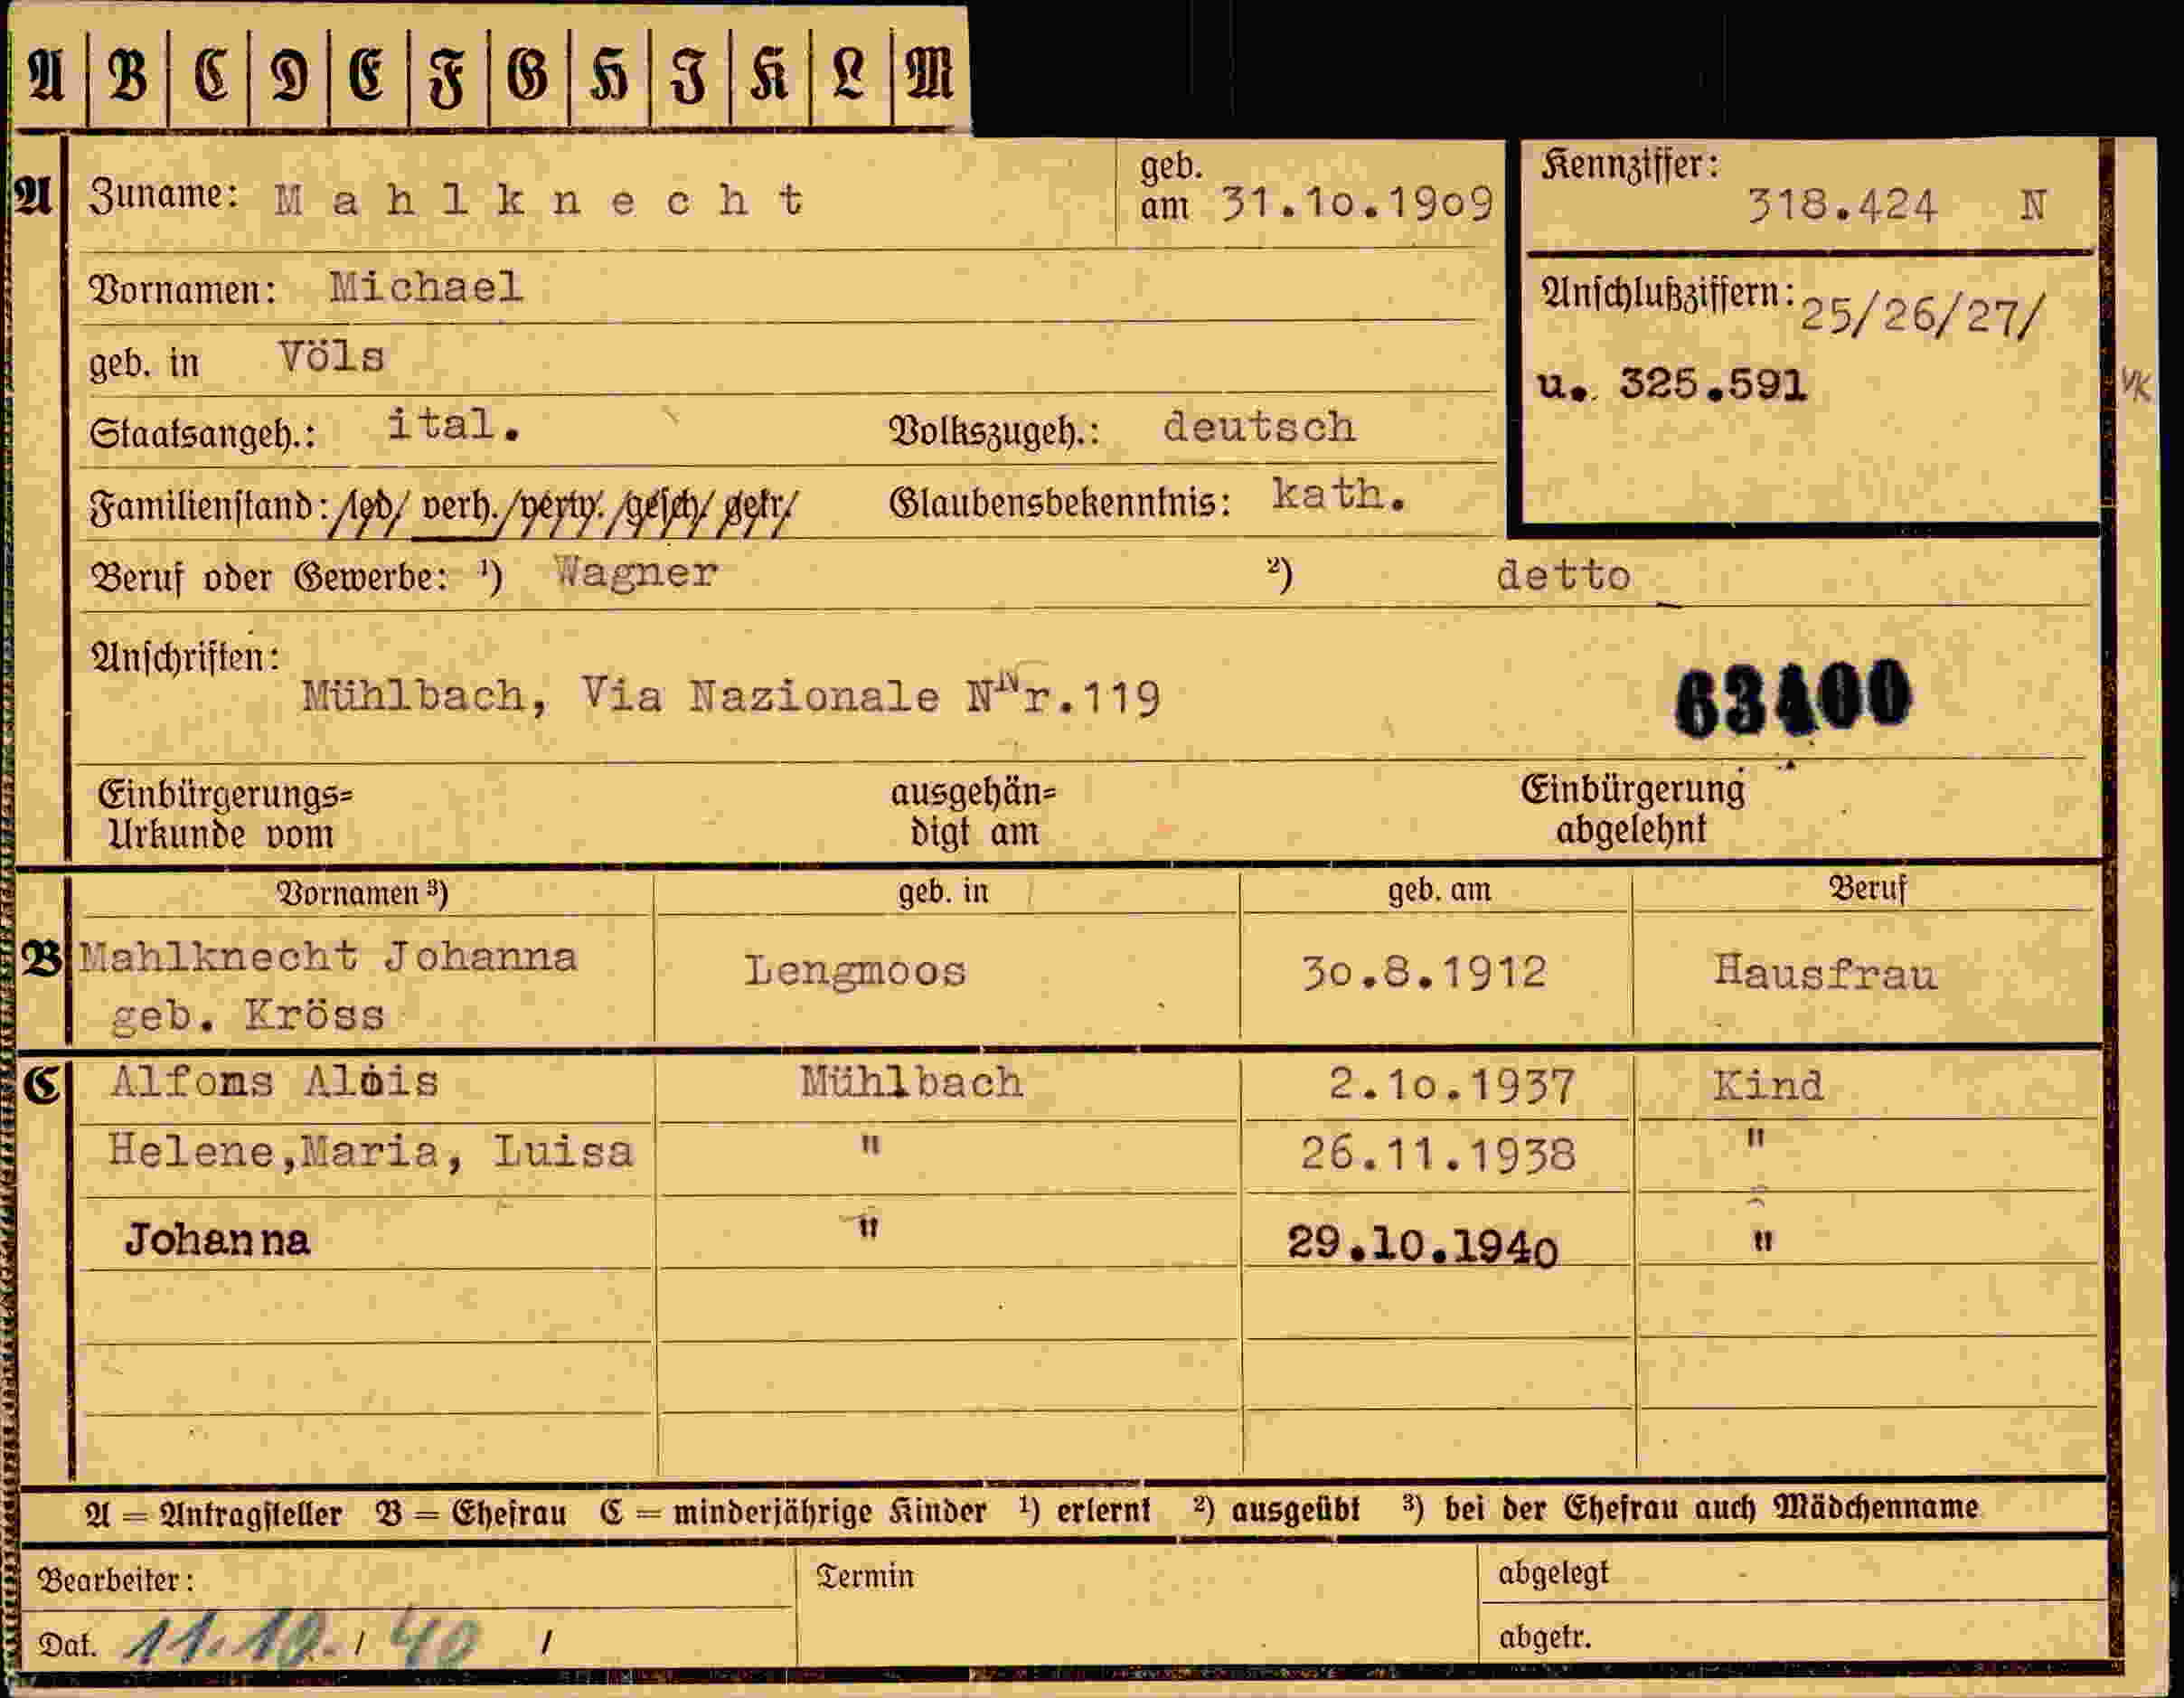 A B C D E F G H I K L M
A Zuname: Mahlknecht geb. am 31.10.1909
Kennziffer: 318.424 N
Vornamen: Michael
Anschlußziffern: 25/26/27/
u. 325.591
VK
geb. in Völs
Staatsangeh.: ital. Volkszugeh.: deutsch
Familienstand: /led/ verh. /verw. /gesch/ getr/ Glaubensbekenntnis: kath.
Beruf oder Gewerbe: ¹) Wagner ²) detto
Anschriften:
Mühlbach, Via Nazionale Nr. 119
63400
Einbürgerungs= ausgehän= Einbürgerung
Urkunde vom digt am abgelehnt
Vornamen ³) geb. in geb. am Beruf
B Mahlknecht Johanna Lengmoos 30.8.1912 Hausfrau
geb. Kröss
C Alfons Alois Mühlbach 2.10.1937 Kind
Helene,Maria, Luisa " 26.11.1938 "
Johanna " 29.10.1940 "
A = Antragsteller B = Ehefrau C = minderjährige Kinder ¹) erlernt ²) ausgeübt ³) bei der Ehefrau auch Mädchenname
Bearbeiter: Termin abgelegt
Dat. 11.10./40 / abgetr.